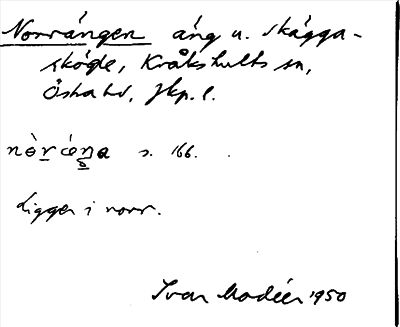 Norrängen äng u. Skägga-
skögle, Kråkshults sn,
Östra hd, Jkp. l.
s. 166.
Ligger i norr.
Ivar Modéer 1950